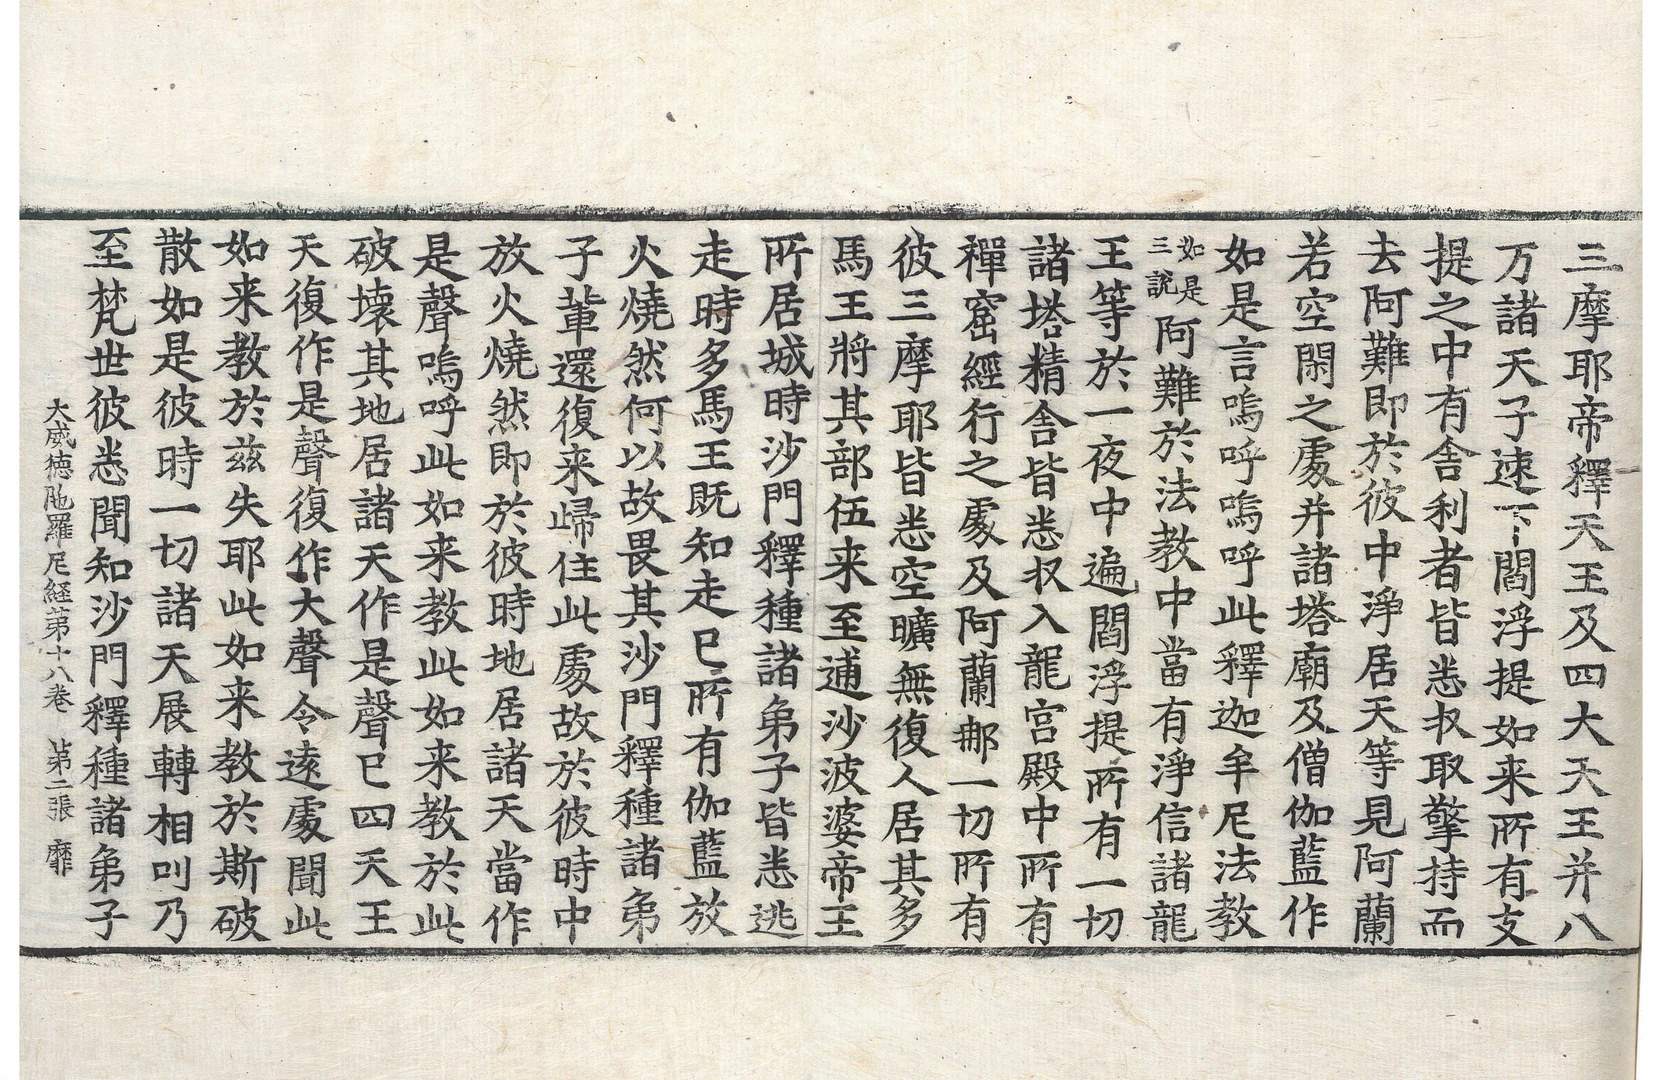 三摩耶帝釋天王及四大天王并八
万諸天子速下閻浮提如来所有支
提之中有舍利者皆悉収取擎持而
去阿難即於彼中淨居天等見阿蘭
若空閑之處并諸塔廟及僧伽藍作
如是言嗚呼嗚呼此釋迦牟尼法教
如是三說阿難於法教中當有淨信諸龍
王等於一夜中遍閻浮提所有一切
諸塔精舍皆悉収入龍宮殿中所有
禪窟經行之處及阿蘭那一切所有
彼三摩耶皆悉空曠無復人居其多
馬王將其部伍来至逋沙波婆帝王
所居城時沙門釋種諸弟子皆悉逃
走時多馬王既知走已所有伽藍放
火燒然何以故畏其沙門釋種諸弟
子輩還復来歸住此處故於彼時中
放火燒然即於彼時地居諸天當作
是聲嗚呼此如来教此如来教於此
破壞其地居諸天作是聲已四天王
天復作是聲復作大聲令遠處聞此
如来教於茲失耶此如来教於斯破
散如是彼時一切諸天展轉相叫乃
至梵世彼悉聞知沙門釋種諸弟子
大威德陁羅尼経第十八卷 第二張 靡